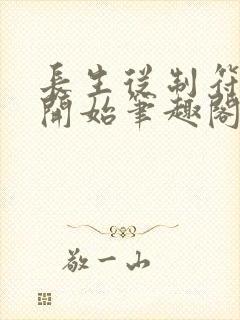 長生從制符
開始筆趣閣
敬一山